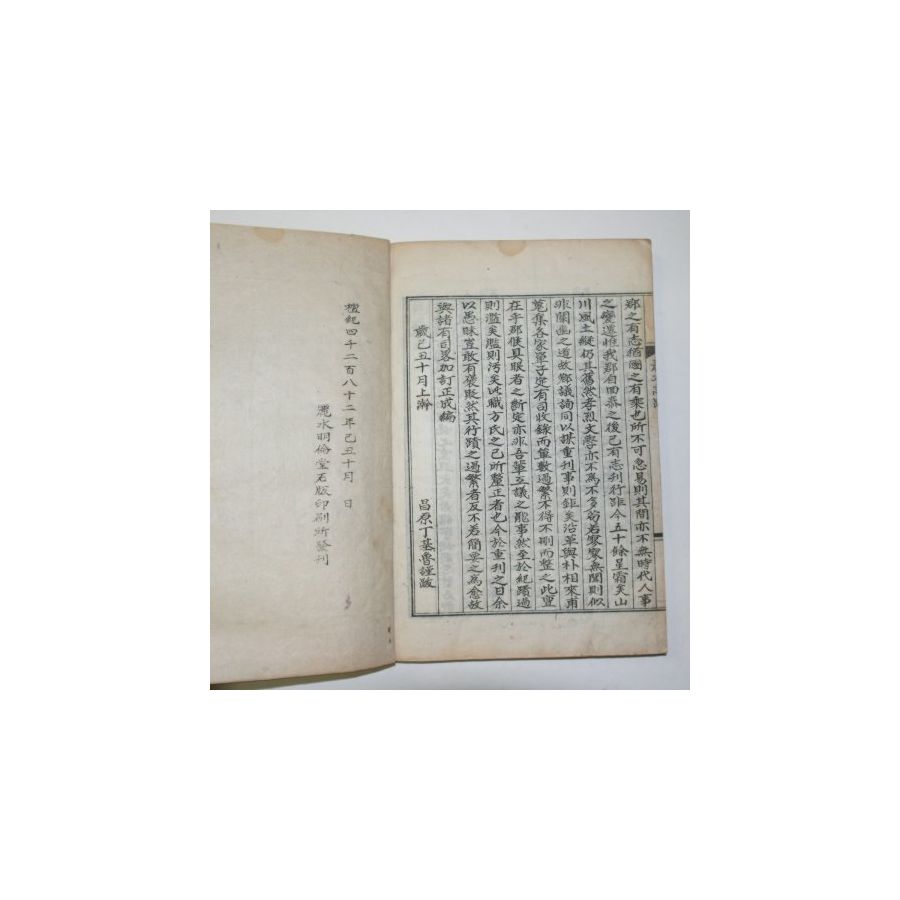 鄕之有志猶國之有乘也所不可忽易則其間亦不無時代人事
之變遷惟我郡自回泰之後已有志刊行距今五十餘星霜矣山
川風土縱仍其舊然孝烈文學亦不爲不多苟若寥寥無聞則似
非闡幽之道故鄕議詢同以謀重刊事則鉅矣治革與朴相來甫
蒐集各家單子定有司收錄而單數過繁不得不刪而整之此豈
在乎郡候具眼者之斷定亦非吾輩立議之能事然至於紀蹟過
則濫矣濫則汚矣此職方氏之已所釐正者也今於重刊之日余
以愚昧豈敢有褒貶然其行蹟之過繁者反不若簡要之爲愈故
與諸有司畧加訂正成編
歲己丑十月上澣
昌原丁基魯謹跋
檀紀四千二百八十二年己丑十月　日
麗水明倫堂石版印刷所發刊